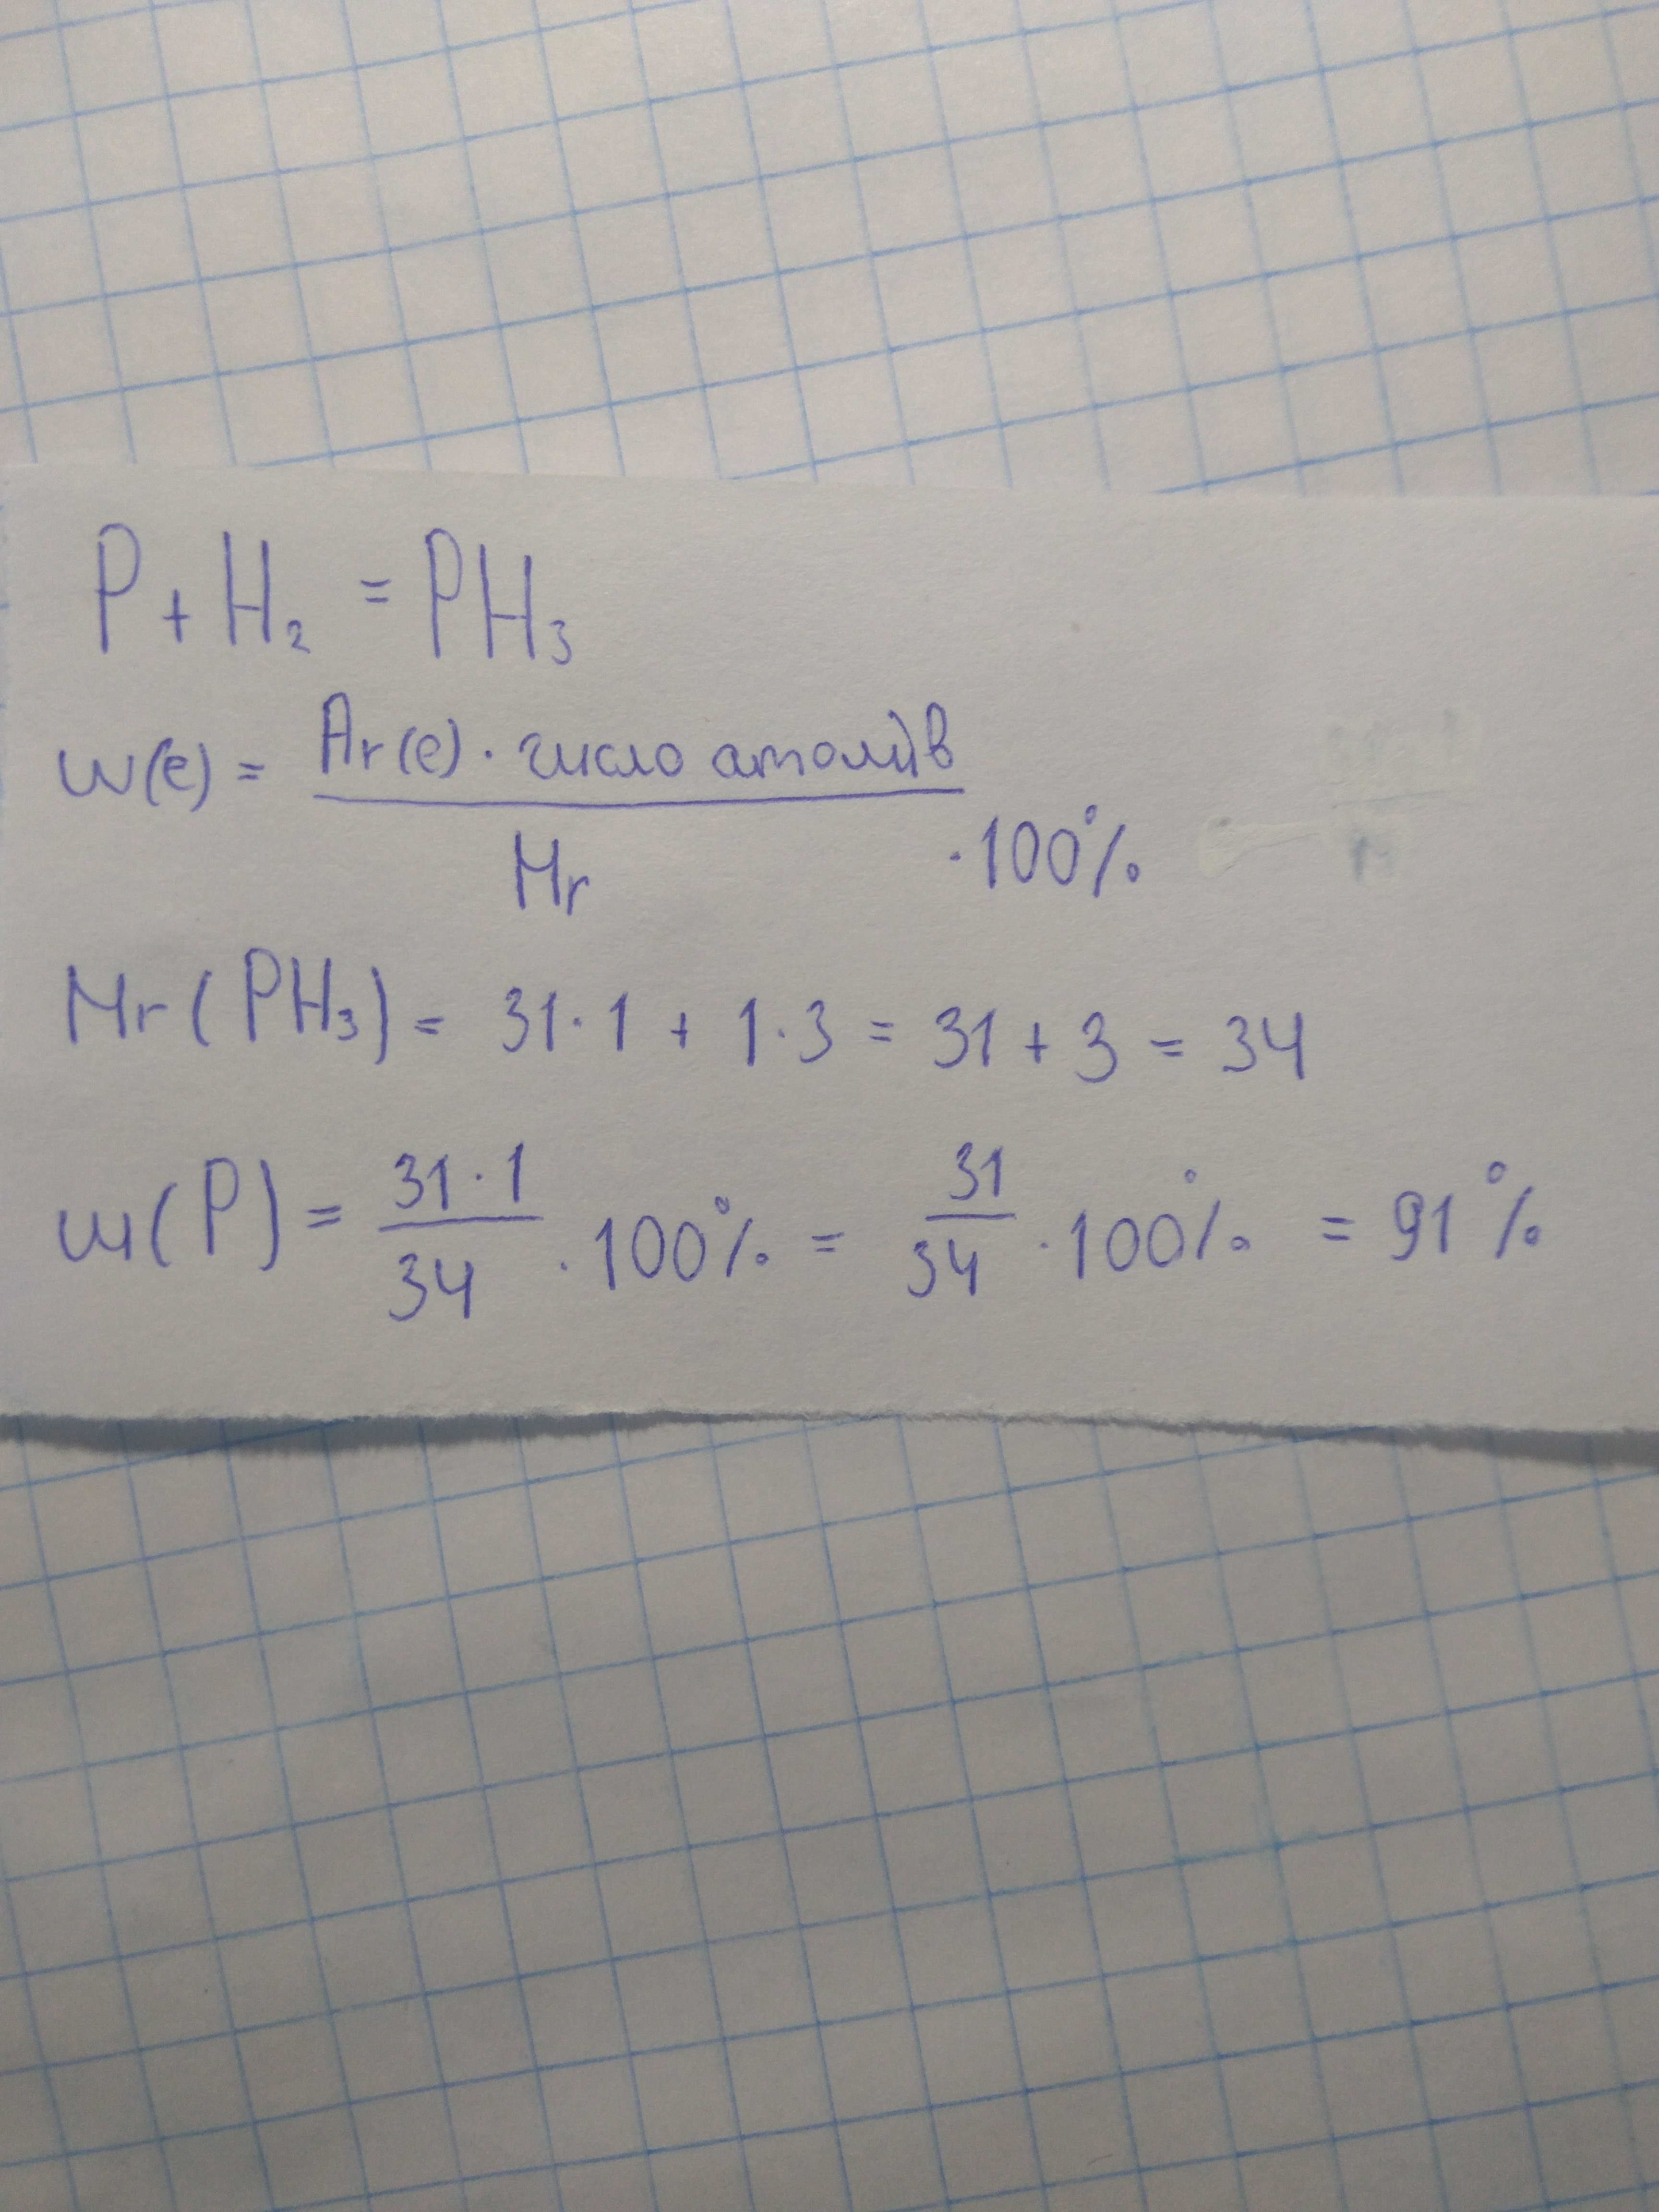 P + H₂ = PH₃
w(e) = Ar(e) · число атомів / Mr · 100%
Mr(PH₃) = 31·1 + 1·3 = 31 + 3 = 34
w(P) = 31·1 / 34 · 100% = 31 / 34 · 100% = 91%